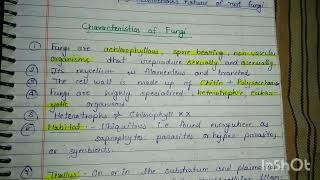 nature of most fungi
Characteristics of Fungi
① Fungi are achlorophyllous, spore bearing, non-vascular
organisms that reproduce sexually and asexually.
② Its mycelium is filamentous and branched
③ The cell wall is made up of Chitin + Polysaccharide
④ Fungi are highly specialized, heterotrophic, eukar-
yotic organisms.
⑤ Heterotrophs Chlorophyll xx
⑥ Habitat :- Ubiquitous i.e found everywhere as
saprophytes, parasites or hyper parasites,
or symbionts.
Thallus :- On or in the substratum and plasmo-
InShOt